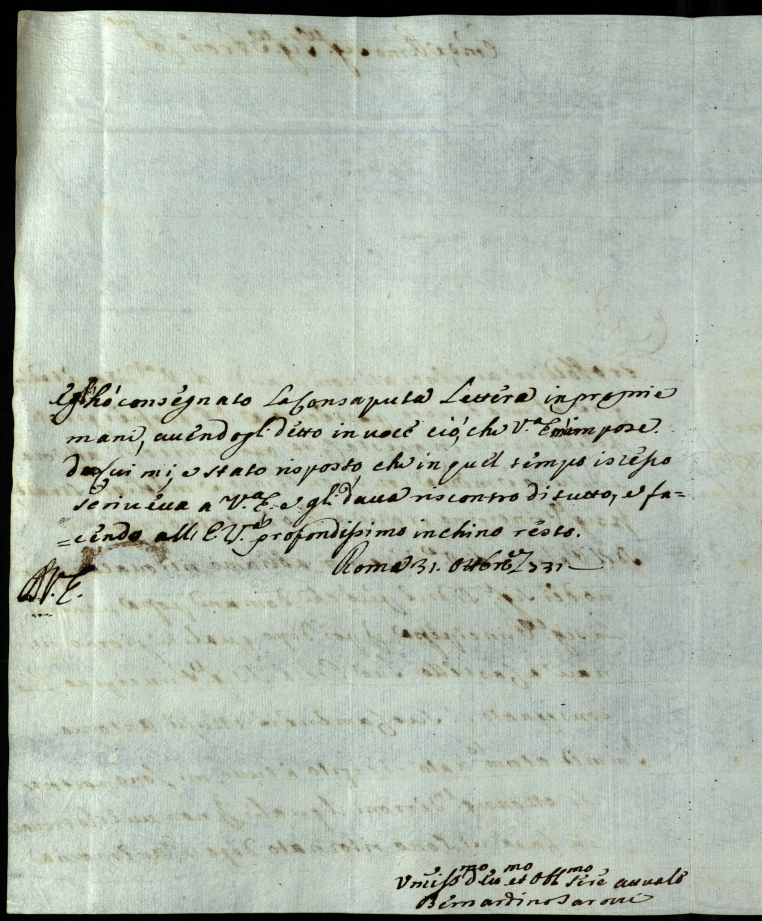 egl'hò consegnato La Consaputa Lettera in proprie
mani, auendogl. detto in uoce ciò, che V.ª E. m'impose
da Cui mi, e stato risposto che in quel tempo istesso
scriueua a V.ª E. e gl. daua riscontro di tutto, e fa=
=cendo all E. V.ª profondissimo inchino resto.
Roma 31. Ottbre 1731
V. E.
Vmiliss.mo Deu.mo et Obb.mo Sere
Bernardino